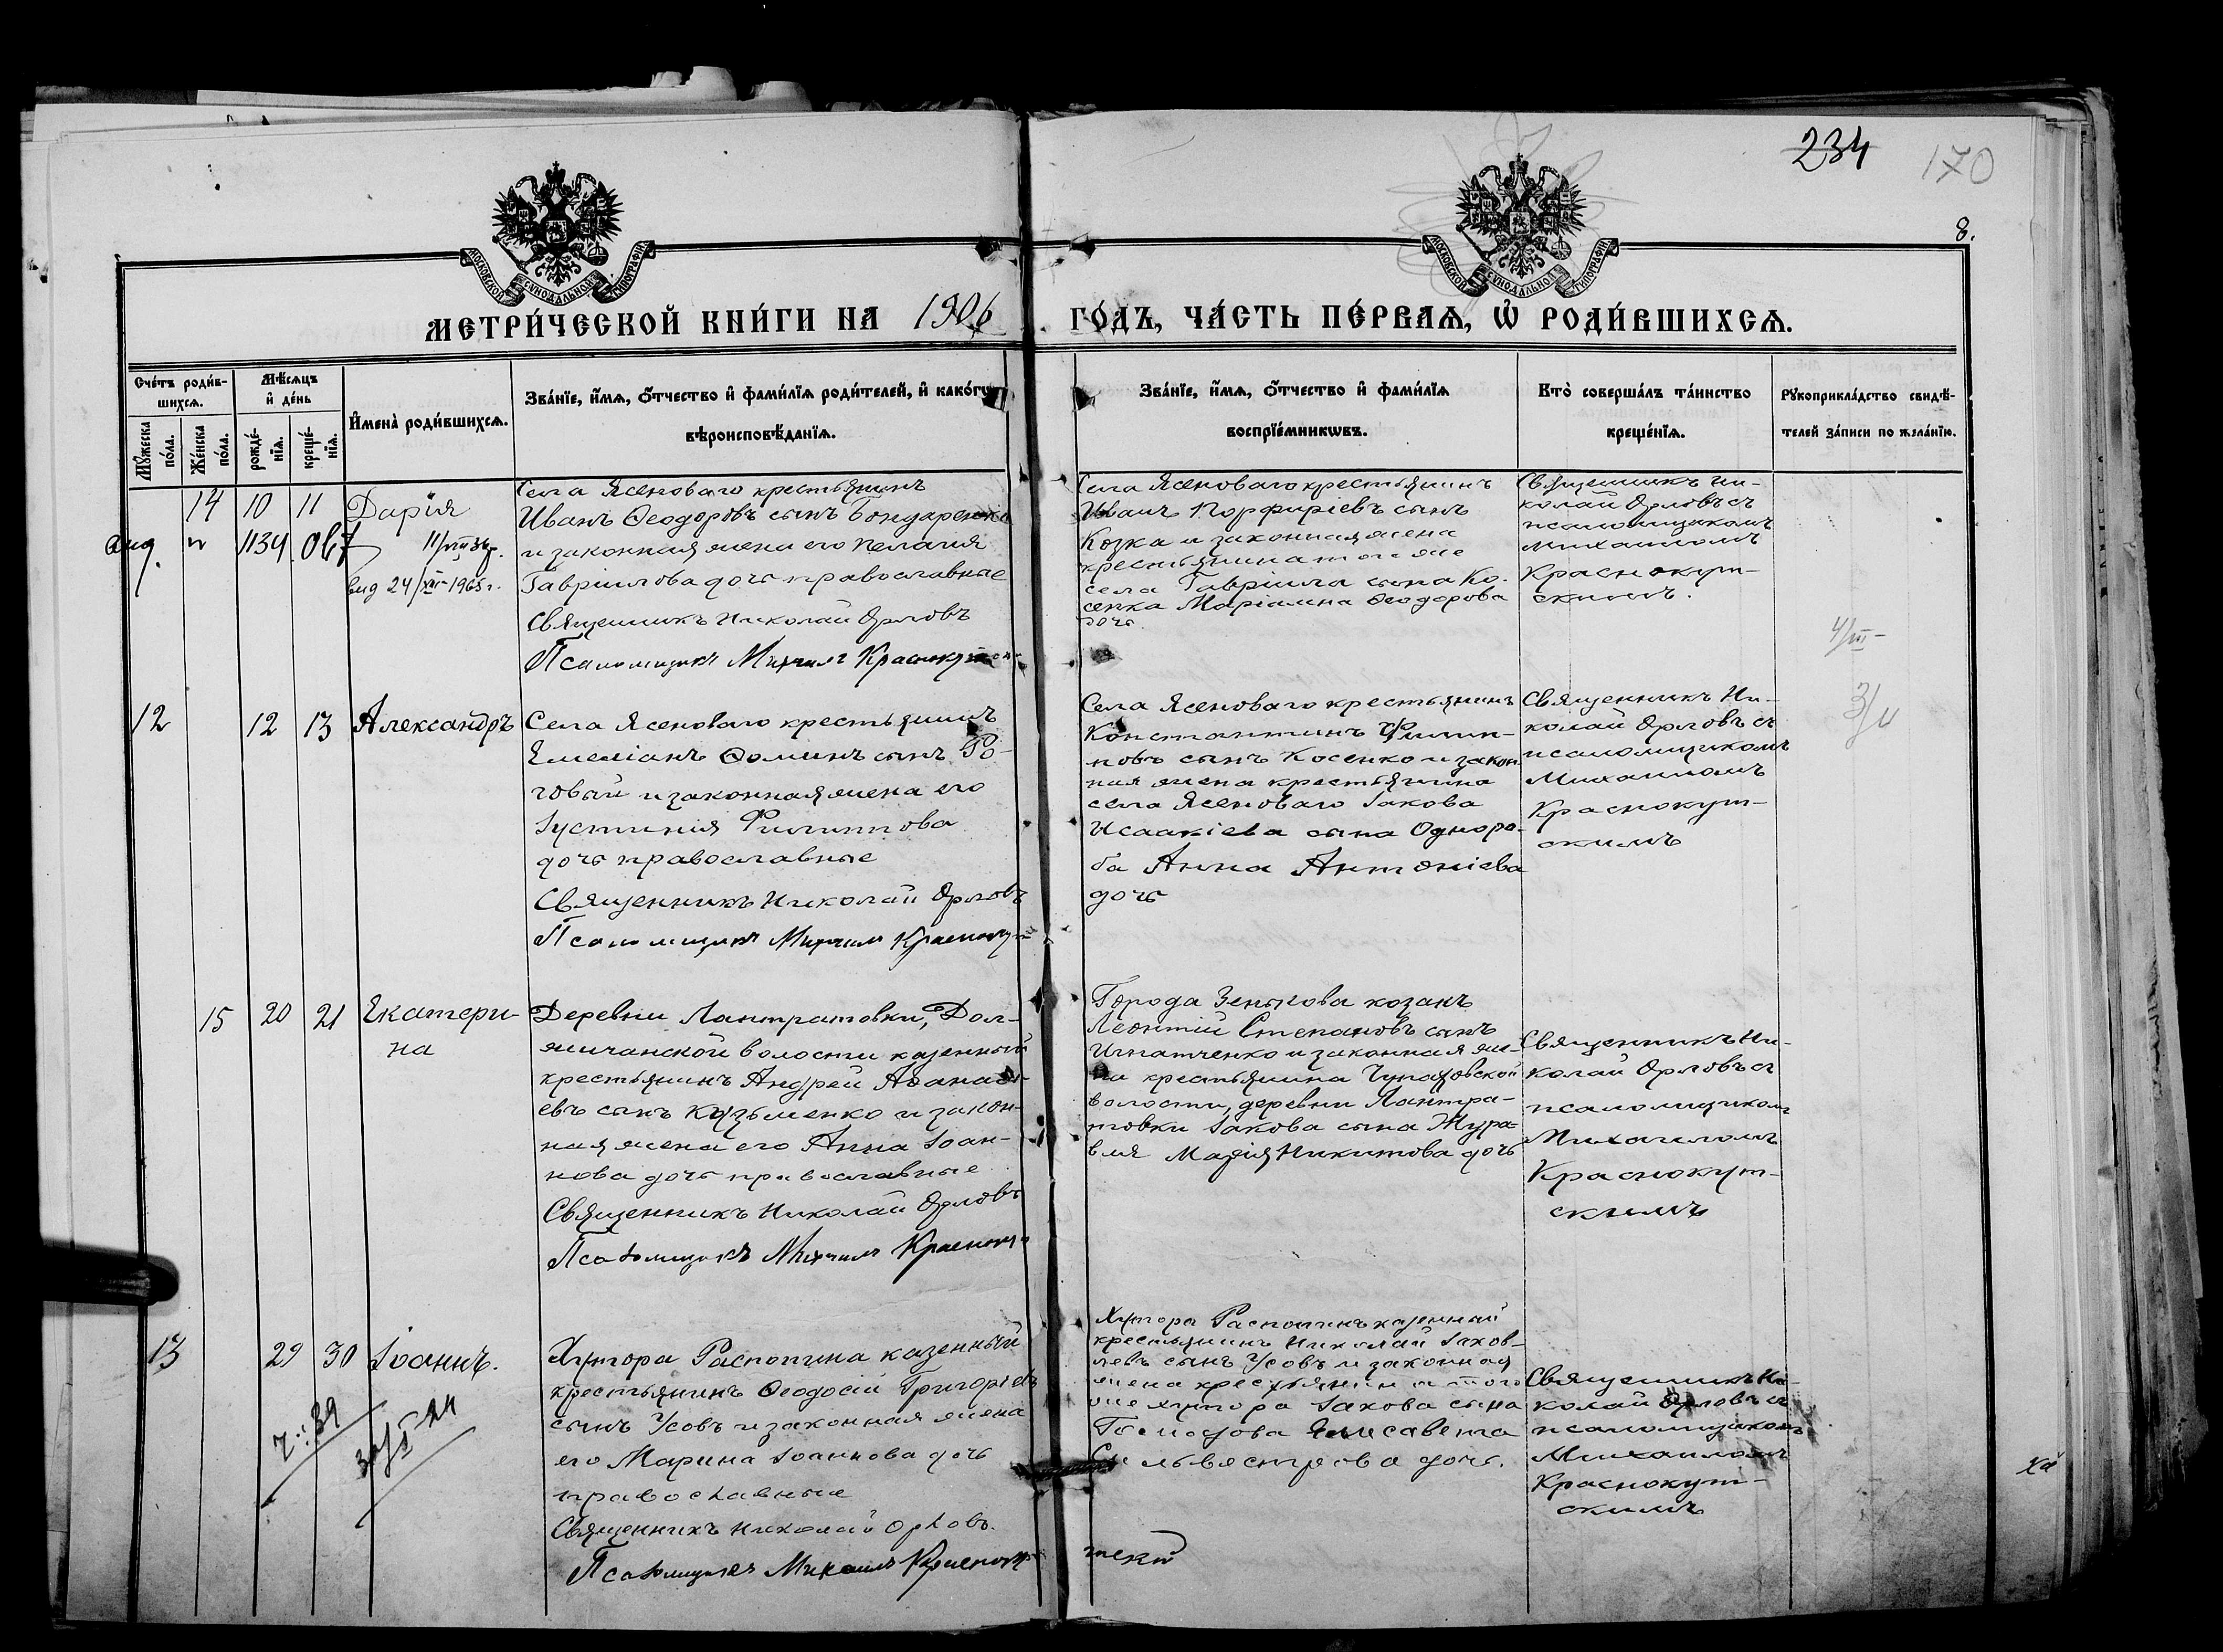 234
170
8.
МОСКОВСКОЙ СУНОДАЛЬНОЙ ТИПОГРАФІИ
МОСКОВСКОЙ СУНОДАЛЬНОЙ ТИПОГРАФІИ
МЕТРИ́ЧЕСКОЙ КНИ́ГИ НА 1906 ГО́ДЪ, ЧА́СТЬ ПЕ́РВАѦ, Ѡ҆ РОДИ́ВШИХСѦ.
Сче́тъ роди́в-
шихсѧ.
Мѣ́сѧцъ
и҆ де́нь
Мꙋ́жеска
по́ла.
Же́нска
по́ла.
рожде́-
нїѧ.
креще́-
нїѧ.
И҆мена̀ роди́вшихсѧ.
Зва́нїе, и҆́мѧ, о҆́тчество и҆ фами́лїѧ роди́телей, и҆ како́гѡ
вѣроисповѣ́данїѧ.
Зва́нїе, и҆́мѧ, о҆́тчество и҆ фами́лїѧ
воспрїе́мникѡвъ.
Кто̀ соверша́лъ та́инство
креще́нїѧ.
Рꙋкоприкла́дство свидѣ́-
телей за́писи по жела́нїю.
14 10 11 Дарія
1134 11/VIII
вид 24/XII-1965 г.
Села Ясеноваго крестьянинъ
Иванъ Ѳеодоровъ сынъ Бондаренко
и законная жена его Пелагія
Гавріилова дочь православные
Священникъ Николай Орловъ
Псаломщикъ Михаилъ Краснокутскій
Села Ясеноваго крестьянинъ
Иванъ Порфиріевъ сынъ
Козка и законная жена
крестьянина того же
села Гавріила сына Ко-
сенка Маріамна Ѳеодорова
дочь.
Священникъ Ни-
колай Орловъ съ
псаломщикомъ
Михаиломъ
Краснокут-
скимъ.
12 12 13 Александръ
Села Ясеноваго крестьянинъ
Емеліанъ Ѳоминъ сынъ Ро-
говый и законная жена его
Іустинія Филиппова
дочь православные
Священникъ Николай Орловъ
Псаломщикъ Михаилъ Краснокут
Села Ясеноваго крестьянинъ
Константинъ Филип-
повъ сынъ Косенко и закон
ная жена крестьянина
села Ясеноваго Іакова
Исаакіева сына Одноро-
ба Анна Антоніева
дочь
Священникъ Ни-
колай Орловъ съ
псаломщикомъ
Михаиломъ
Краснокут-
скимъ
15 20 21 Екатери-
на
Деревни Лантратовки, Дол-
жичанской волости казенный
крестьянинъ Андрей Аѳанась-
евъ сынъ Козьменко и закон-
ная жена его Анна Іоан-
нова дочь православные
Священникъ Николай Орловъ
Псаломщикъ Михаилъ Краснокут
Города Зенькова козакъ
Леонтій Степановъ сынъ
Игнатченко и законная же-
на крестьянина Чупаховской
волости, деревни Лантра-
товки Іакова сына Жура-
вля Марія Никитова дочь
Священникъ Ни-
колай Орловъ съ
псаломщикомъ
Михаиломъ
Краснокут-
скимъ
13 29 30 Іоаннъ.
Хутора Распопина казенный
крестьянинъ Ѳеодосій Григорьевъ
сынъ Усовъ и законная жена
его Марина Іоаннова дочь
православные
Священникъ Николай Орловъ.
Псаломщикъ Михаилъ Краснокут
Хутора Распопина казенный
крестьянинъ Николай Іаков-
левъ сынъ Усовъ и законная
жена крестьянина того
же хутора Іакова сына
Елисавета
Сильвестрова дочь.
Священникъ Ни-
колай Орловъ съ
псаломщикомъ
Михаиломъ
Краснокут-
скимъ